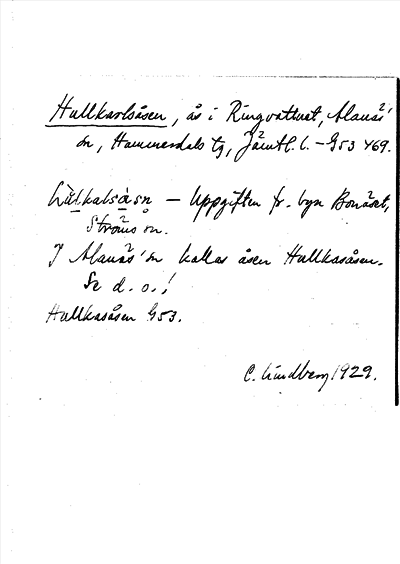 Hallkarlsåsen, ås i Ringvattnet, Alanäs'
sn, Hammerdals tg, Jämtl. l. – G53 469.
– Uppgiften fr. byn Bonäset,
Ströms sn.
I Alanäs' sn kallas åsen Hallkasåsen.
Se d. o.!
Hallkasåsen G53.
C. Lindberg 1929.